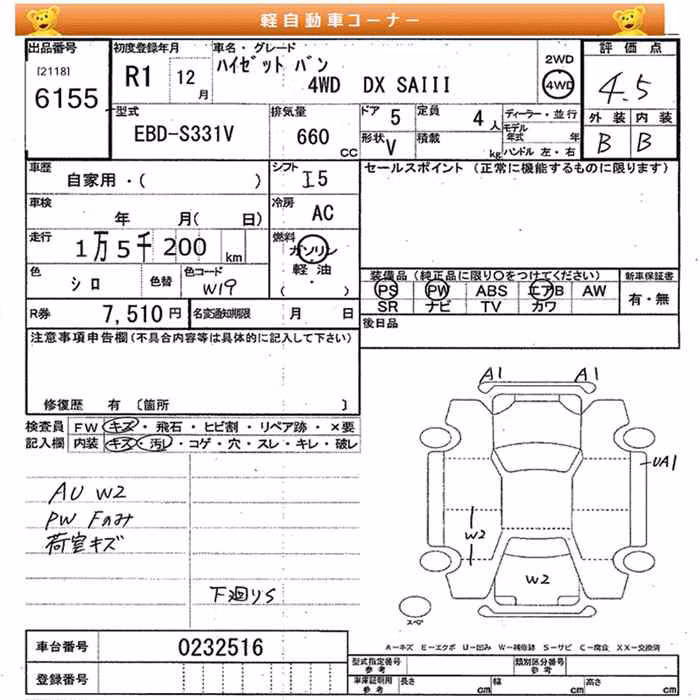 軽自動車コーナー
出品番号 初度登録年月 車名・グレード 2WD 評価点
[2118] R1 12月 ハイゼット バン
6155 4WD DX SAIII 4WD 4.5
型式 排気量 ドア 5 定員 4人 ディーラー・並行 外装 内装
EBD-S331V 660 CC 形状 V 積載 kg モデル年式 年 B B
ハンドル 左・右
車歴 シフト セールスポイント (正常に機能するものに限ります)
自家用・( ) I5
車検 冷房
年 月( 日) AC
走行 燃料
1万5千200 km ガソリン
軽油
( ・ )
色 色替 色コード 装備品 (純正品に限り○をつけてください) 新車保証書
シロ W19 PS PW ABS エアB AW 有・無
SR ナビ TV カワ
R券 7,510円 名変通知期限 月 日 後日品
注意事項申告欄(不具合内容等は具体的に記入して下さい)
修復歴 有 〔箇所 〕
検査員 FW キズ・飛石・ヒビ割・リペア跡・×要
記入欄 内装 キズ・汚レ・コゲ・穴・スレ・キレ・破レ
AU W2
PW Fのみ
荷室キズ
下廻りS
A1 A1
UA1
W2
W2
スペア
A-キズ E-エクボ U-凹み W-補修跡 S-サビ C-腐食 XX-交換済
車台番号 0232516
登録番号
型式指定番号 参考 類別区分番号 参考
車庫証明用 参考 長さ cm 幅 cm 高さ cm